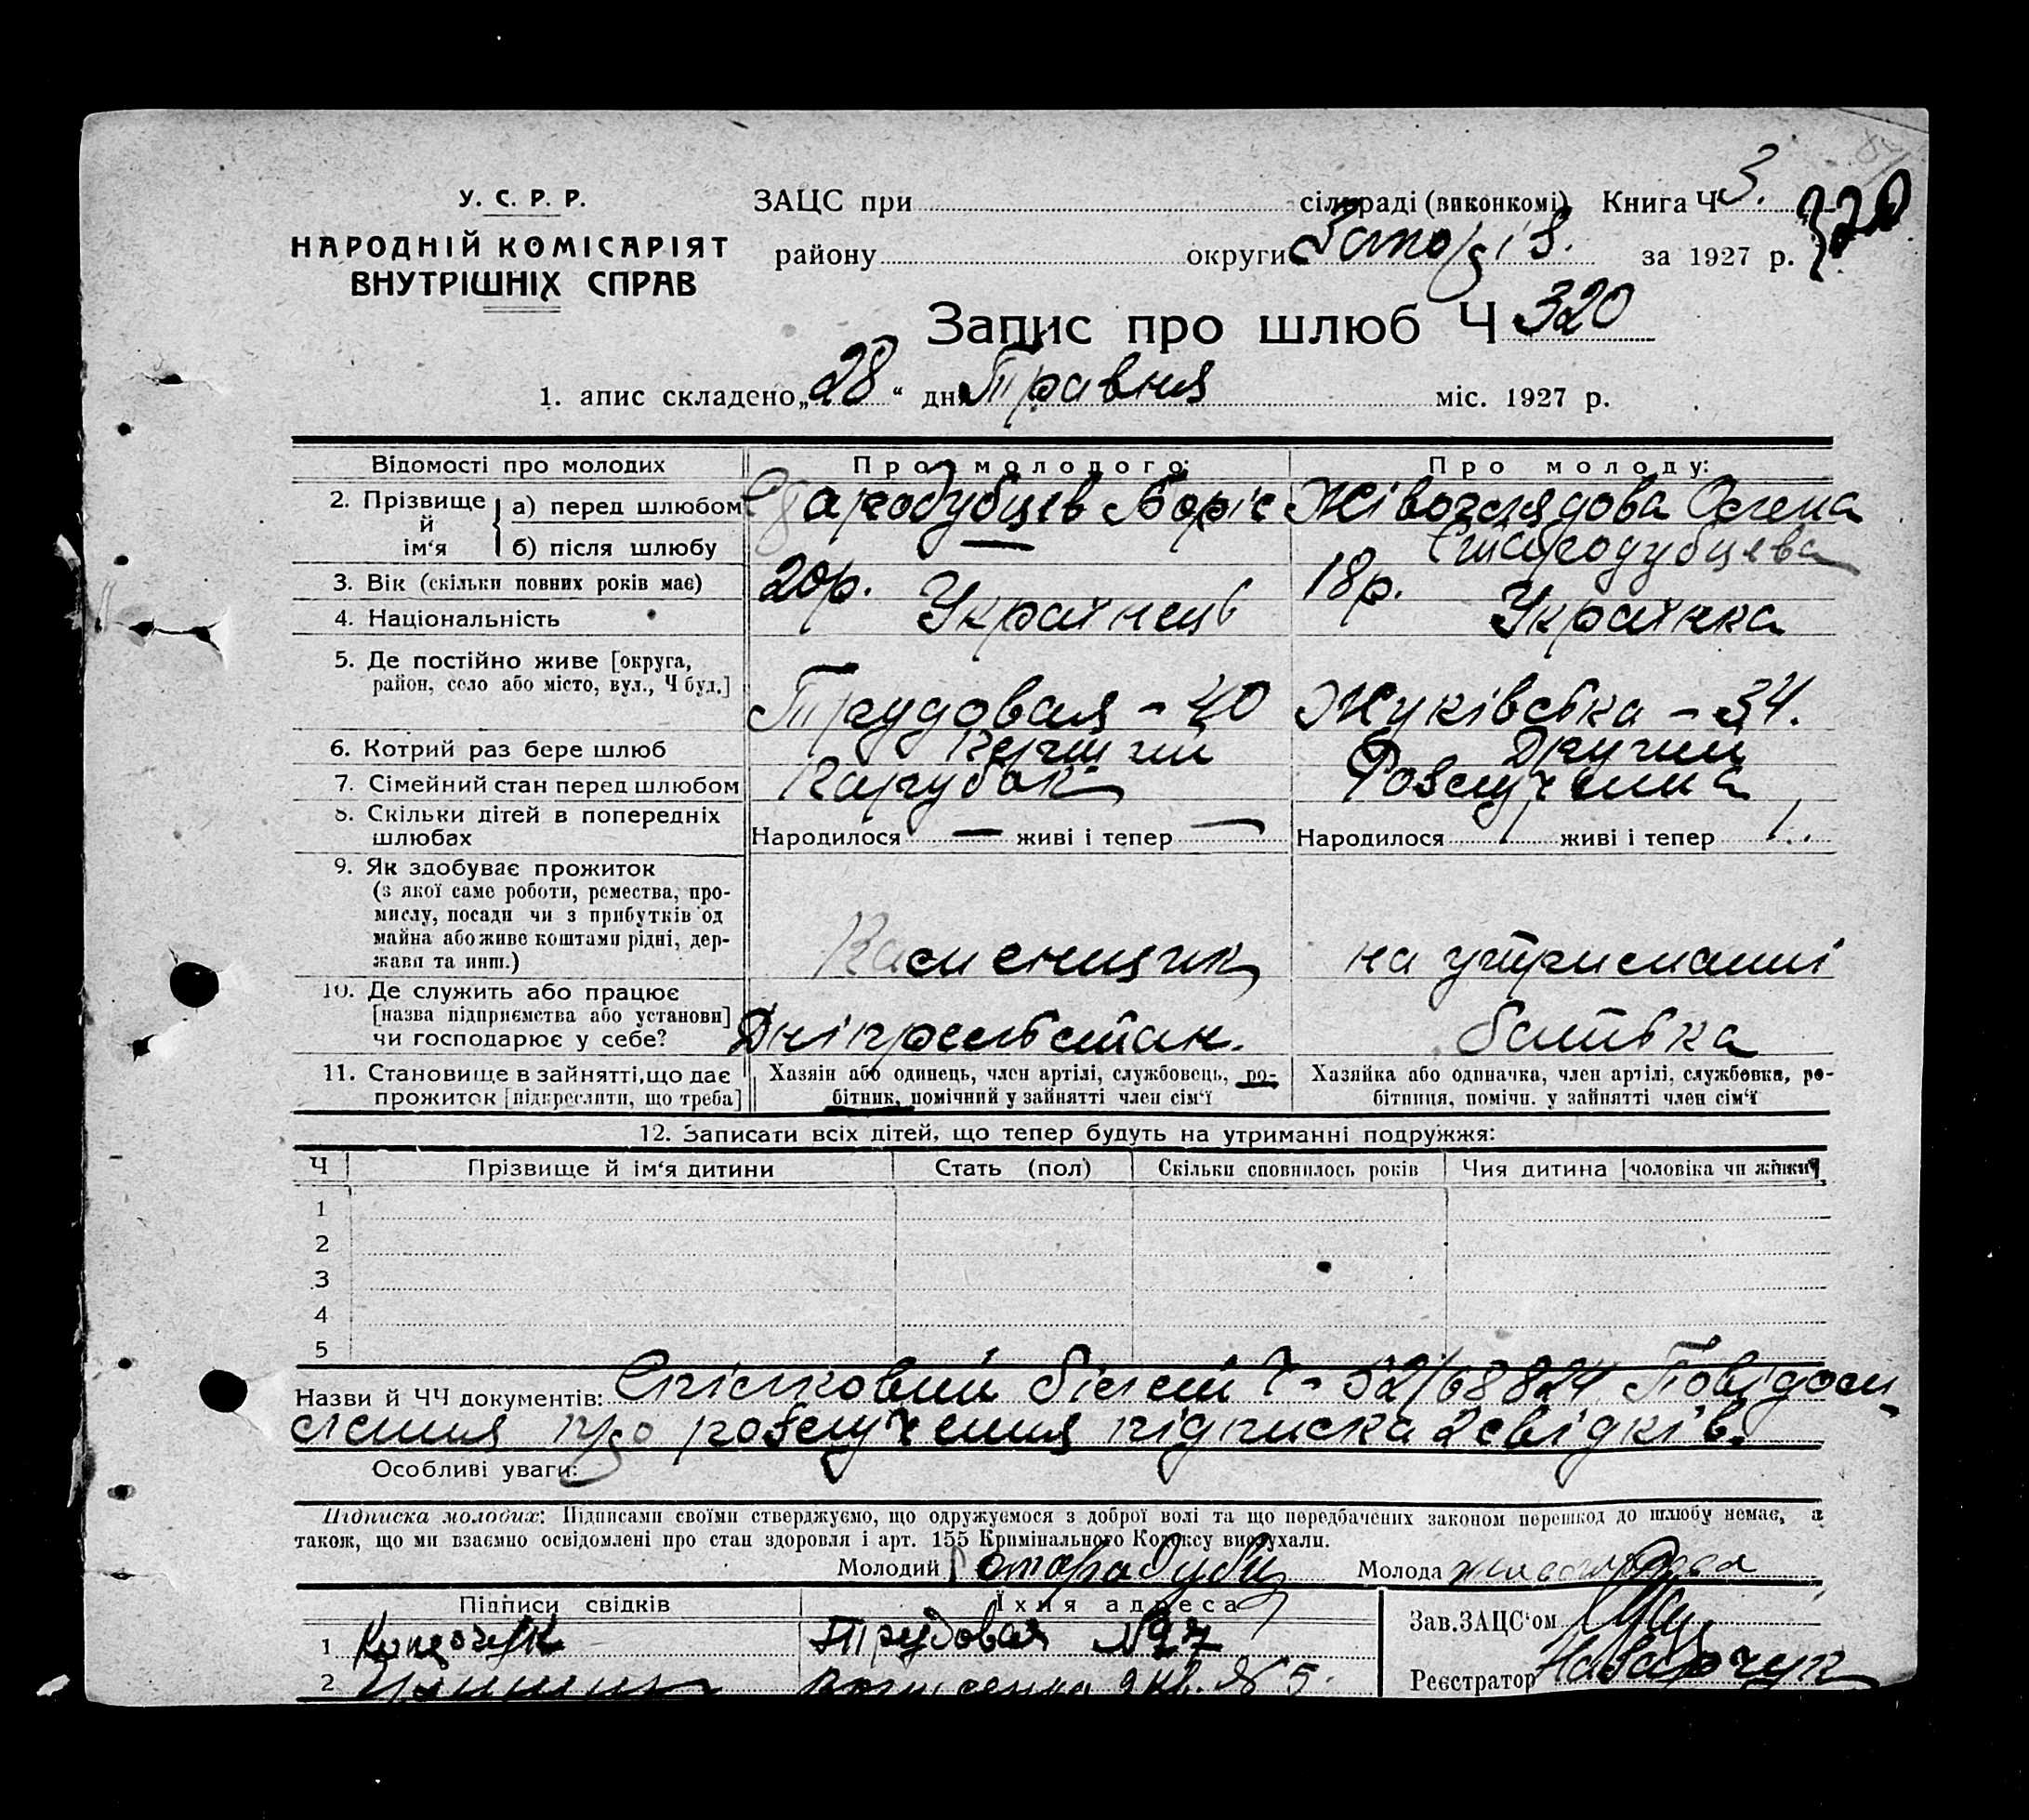 У. С. Р. Р.
НАРОДНІЙ КОМІСАРІЯТ
ВНУТРІШНІХ СПРАВ
ЗАЦС при сільраді (виконкомі) Книга Ч 3. 320
району округи за 1927 р.
Запис про шлюб Ч 320
1. апис складено „28“ дня Травня міс. 1927 р.
Відомості про молодих
Про молодого:
Про молоду:
2. Прізвище й ім‘я
а) перед шлюбом
Стародубцев Боріс
Живоглядова Олена
б) після шлюбу
—
Стародубцева
3. Вік (скільки повних років має)
20р.
18р.
4. Національність
Українець
Українка
5. Де постійно живе [округа,
район, село або місто, вул., Ч буд.]
Трудовая - 40
Жуківська - 34.
6. Котрий раз бере шлюб
Перший
Другий
7. Сімейний стан перед шлюбом
Парубок
Розлучена
8. Скільки дітей в попередніх
шлюбах
Народилося — живі і тепер —
Народилося 1 живі і тепер 1.
9. Як здобуває прожиток
(з якої саме роботи, ремества, про-
мислу, посади чи з прибутків од
майна або живе коштами рідні, дер-
жави та инш.)
Каменщик
на утриманні
10. Де служить або працює
[назва підприємства або установи]
чи господарює у себе?
Дніпрельстан.
батька
11. Становище в зайнятті, що дає
прожиток [підкреслити, що треба]
Хазяін або одинець, член артілі, службовець, ро-
бітник, помічний у зайнятті член сім‘ї
Хазяйка або одиначка, член артілі, службовка, ро-
бітниця, помічн. у зайнятті член сім‘ї
12. Записати всіх дітей, що тепер будуть на утриманні подружжя:
Ч
Прізвище й ім‘я дитини
Стать (пол)
Скільки сповнилось років
Чия дитина [чоловіка чи жінки]
1
2
3
4
5
Назви й ЧЧ документів: Спілковий білет Ч - 52/68824 Повідом-
лення про розлучення підписка 2 свідків.
Особливі уваги:
Підписка молодих: Підписами своїми стверджуємо, що одружуємося з доброї волі та що передбачених законом перешкод до шлюбу немає, а
також, що ми взаємно освідомлені про стан здоровля і арт. 155 Кримінального Кодексу вислухали.
Молодий
Молода
Підписи свідків
Їхня адреса
Зав. ЗАЦС‘ом
1
Трудовая №27
Реєстратор
2
№ 5.